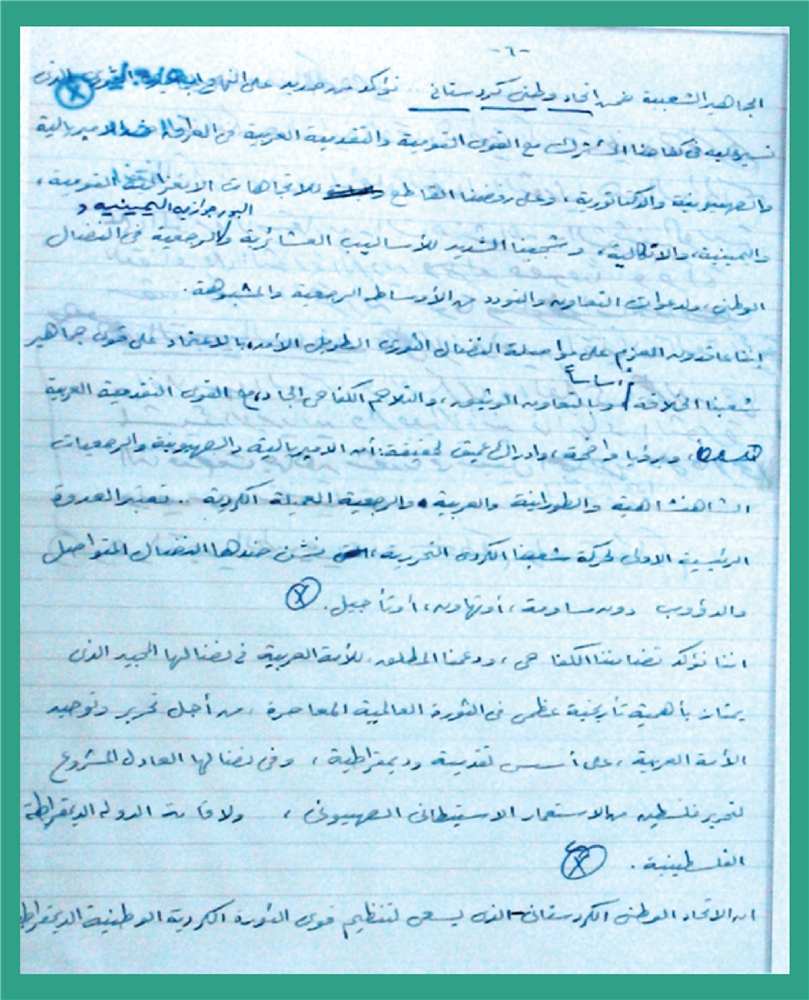 -٦-
الجماهير الشعبية ضمن اتحاد وطني كردستاني .. نؤكد من جديد على النهج الثوري الذي
نسير عليه في كفاحنا المشترك مع القوى القومية والتقدمية العربية في العراق ضد الامبريالية
والصهيونية والدكتاتورية، وعلى رفضنا القاطع للاتجاهات الانعزالية القومية،
البورجوازية اليمينية و
واليمينية، والاتكالية، و شجبنا الشديد للأساليب العشائرية والرجعية في النضال
الوطني، ولدعوات التعاون والتودد من الأوساط الرجعية والمشبوهة.
إننا عاقدون العزم على مواصلة النضال الثوري الطويل الأمد، بالاعتماد على قوى جماهير
أساساً
شعبنا الخلاقة وبالتعاون الوثيق، والتلاحم الكفاحي الجاد، مع القوى التقدمية العربية
، وبرؤيا واضحة، وادراك عميق لحقيقة: أن الامبريالية والصهيونية والرجعيات
الشاهنشاهية والطورانية والعربية، والرجعية العميلة الكردية .. تعتبر العدوة
الرئيسية الاولى لحركة شعبنا الكردي التحررية، نشن ضدها النضال المتواصل
والدؤوب دون مساومة، أو تهاون، أو تأجيل. X
اننا نؤكد تضامننا الكفاحي، ودعمنا المطلق، للأمة العربية في نضالها المجيد الذي
يمتاز بأهمية تأريخية عظمى في الثورة العالمية المعاصرة، من أجل تحرير وتوحيد
الأمة العربية، على أسس تقدمية وديمقراطية، وفي نضالها العادل المشروع
لتحرير فلسطين من الاستعمار الاستيطاني الصهيوني، ولاقامة الدولة الديمقراطية
الفلسطينية. X
ان الاتحاد الوطني الكردستاني الذي يسعى لتنظيم قوى الثورة الكردية الوطنية الديمقراطية